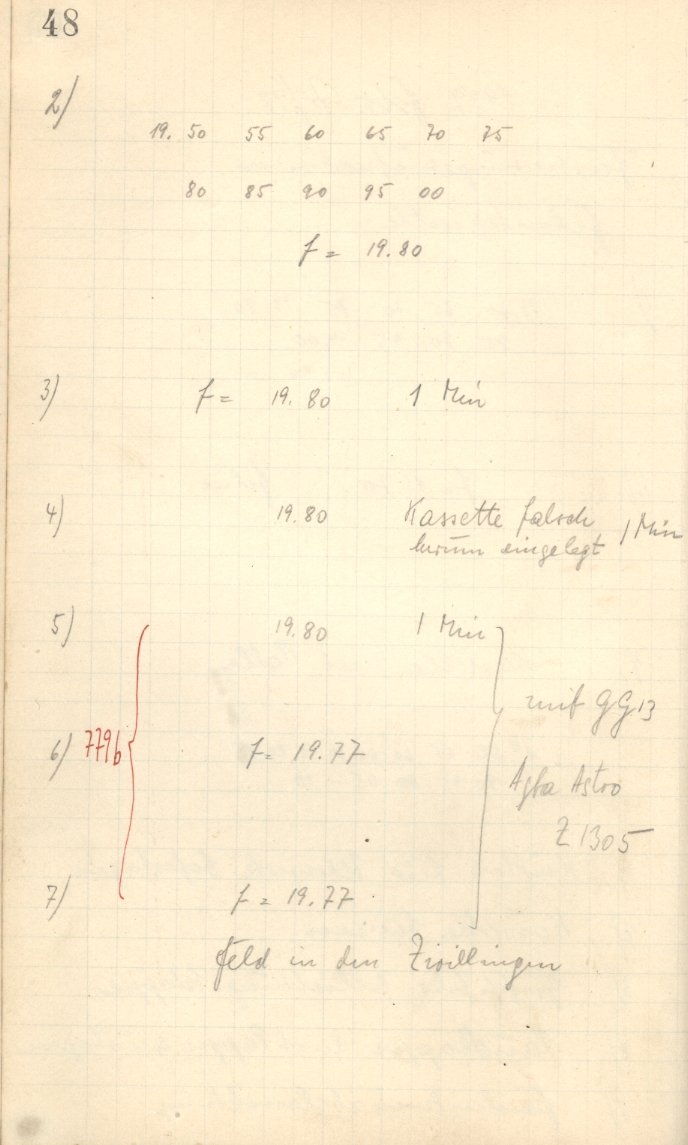 48
2)
19. 50 55 60 65 70 75
80 85 90 95 00
f = 19.80
3) f = 19.80 1 Min
4) 19.80 Kassette falsch 1 Min
herum eingelegt
5) 19.80 1 Min
mit GG13
6) 779b f = 19.77
Agfa Astro
Z 1305
7) f = 19.77
Feld in den Zwillingen